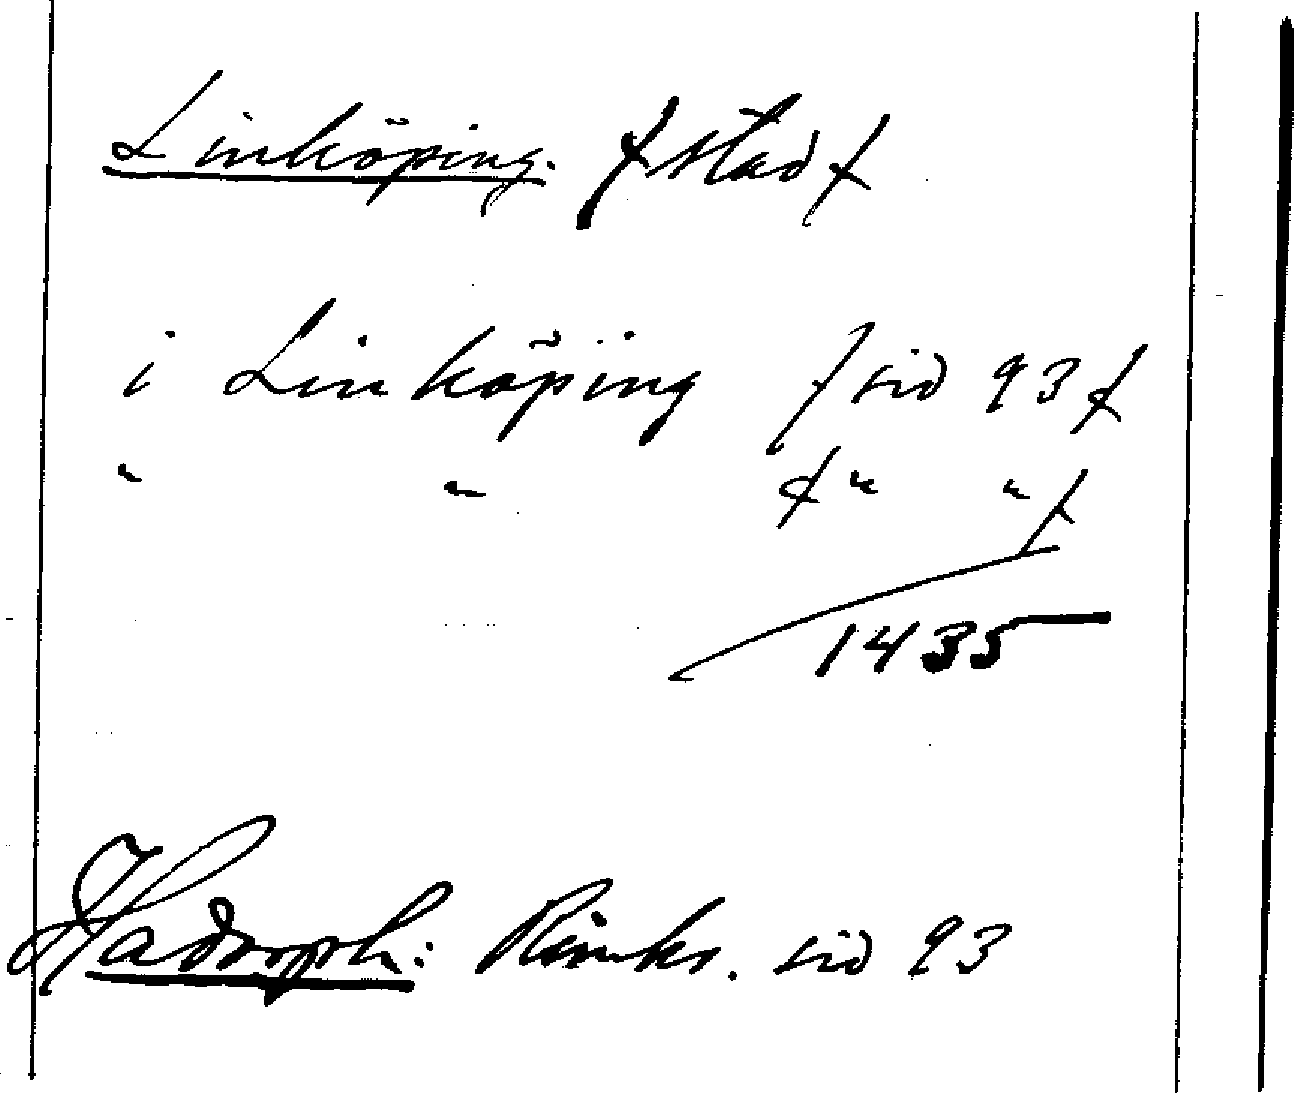 Linköping. /stad/
i Linköping /sid 93/
" " /" "/
1435
Hadorph: Rimkr. sid 93